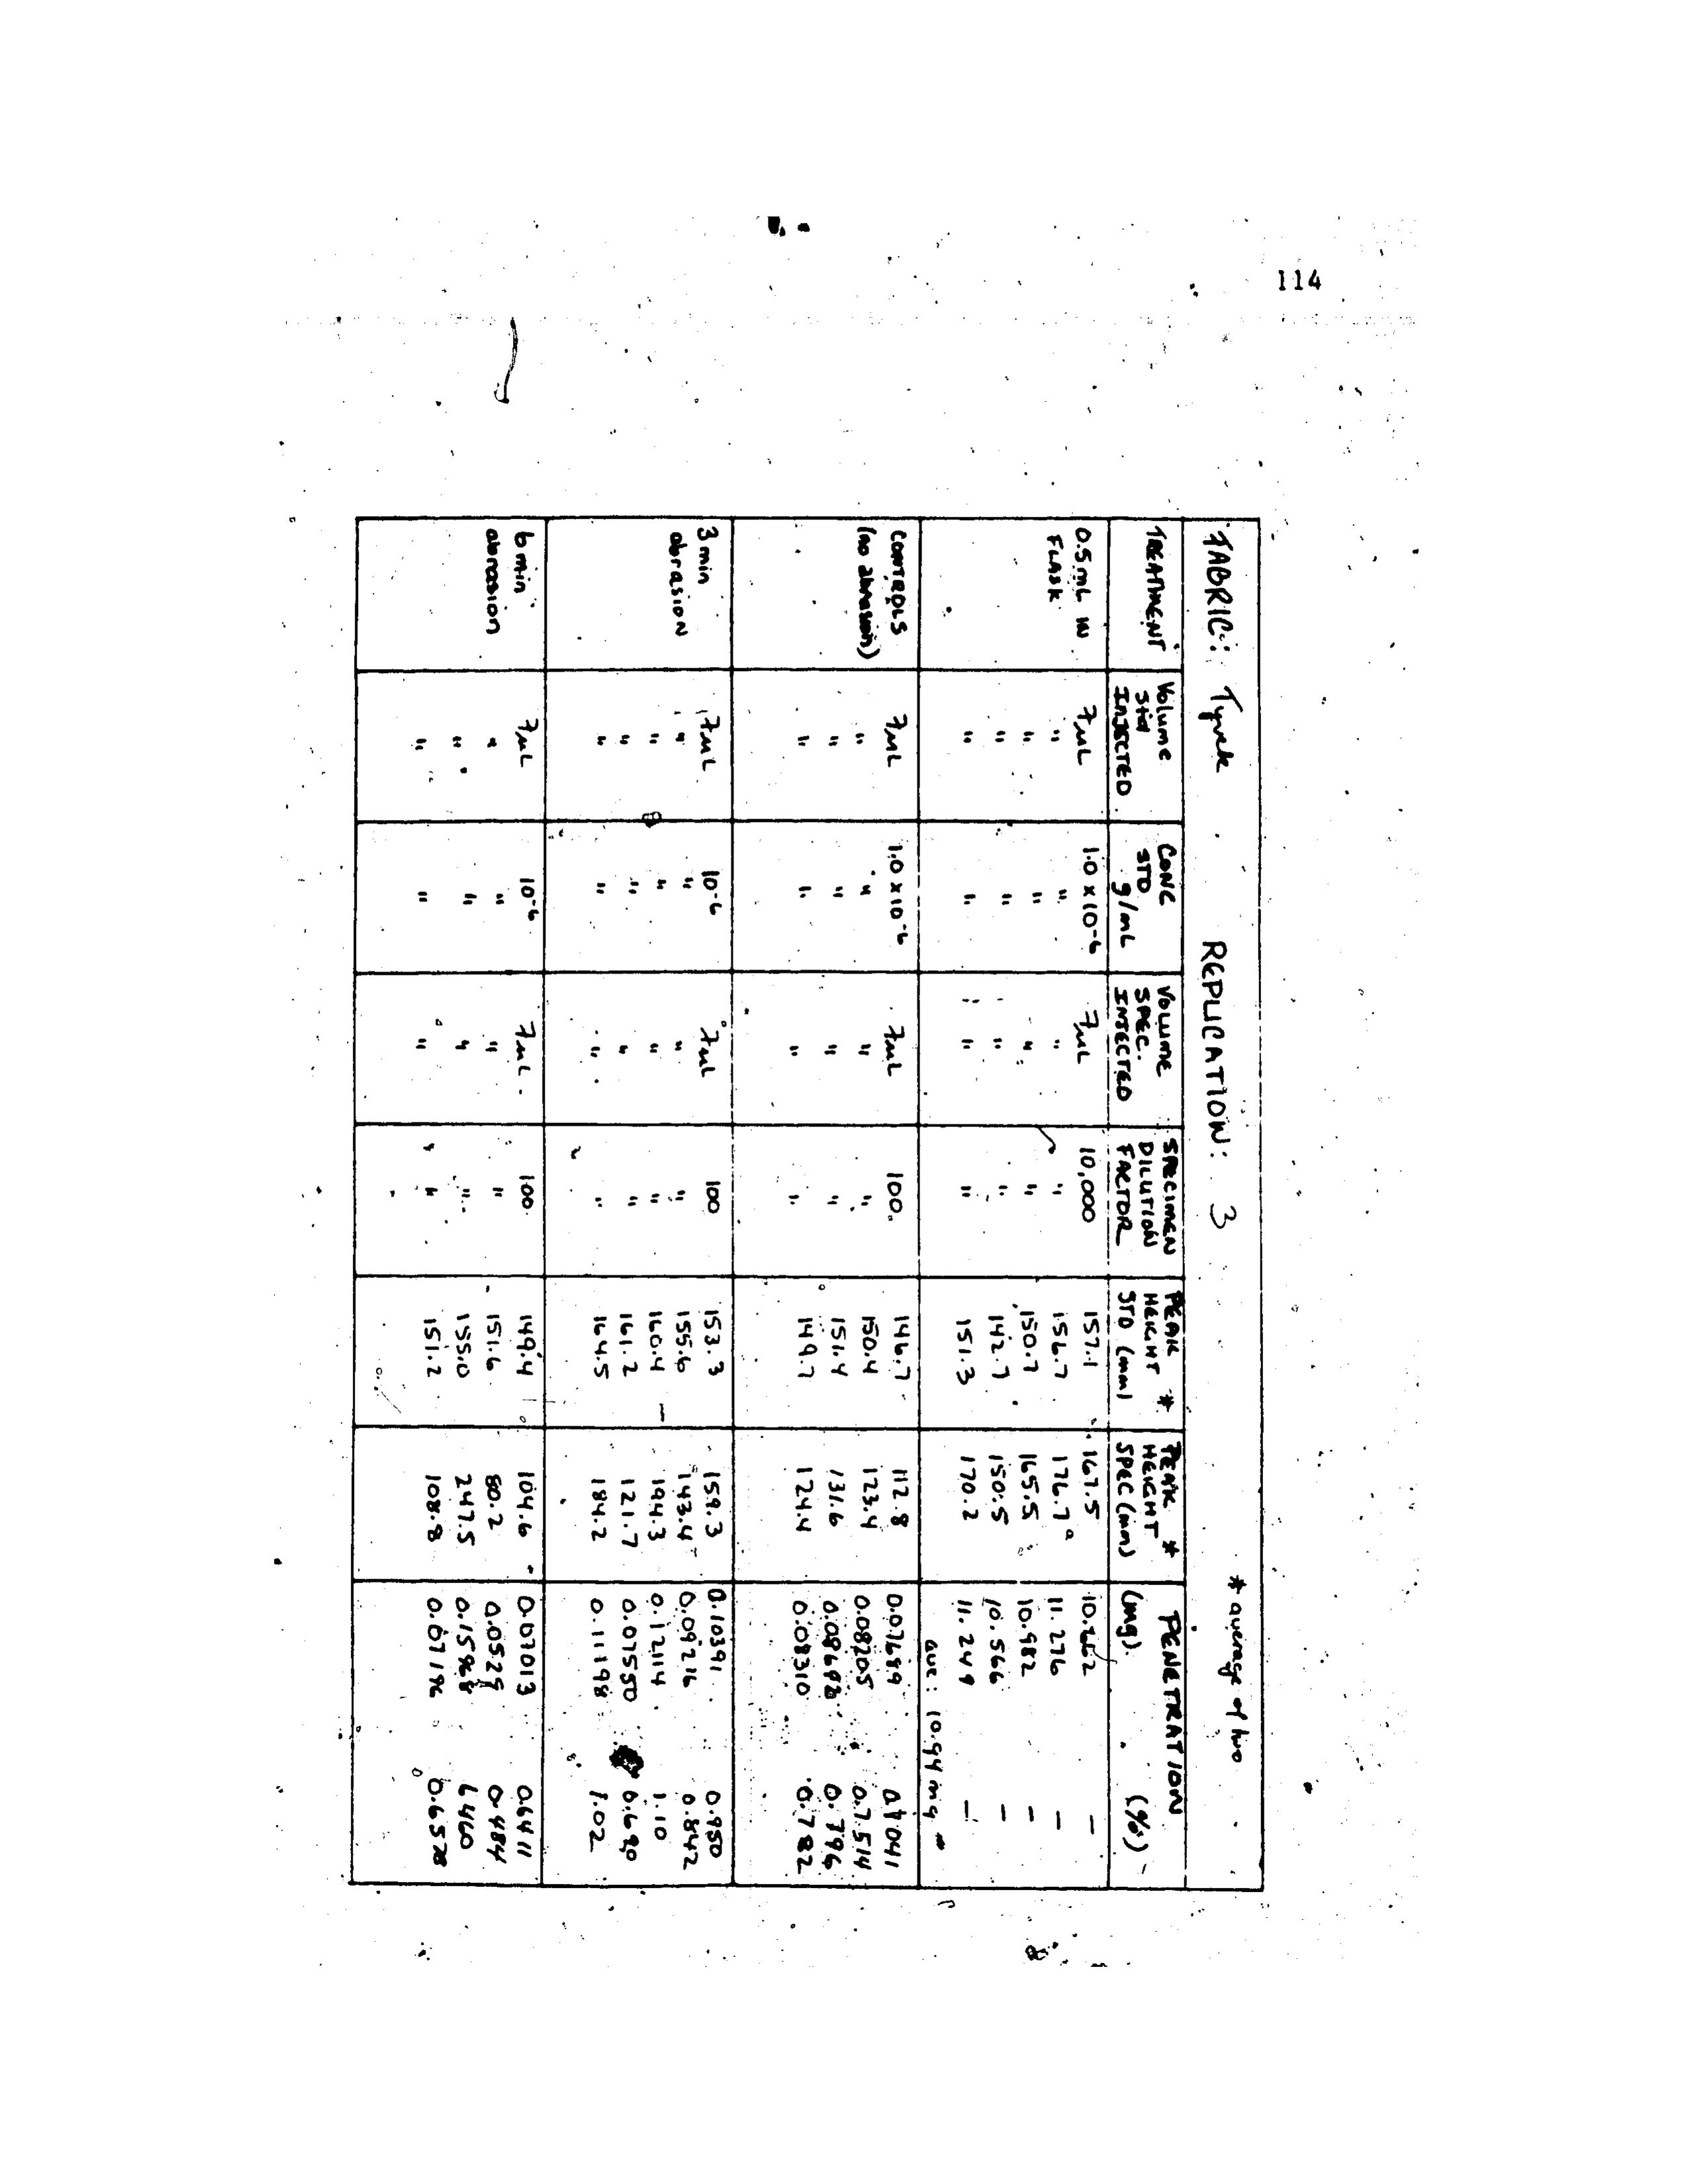 114
FABRIC: Tyvek REPLICATION: 3 * average of two
TREATMENT Volume Std INJECTED CONC STD g/mL VOLUME SPEC. INJECTED SPECIMEN DILUTION FACTOR PEAK HEIGHT * STD (mm) PEAK HEIGHT * SPEC (mm) PENETRATION (mg) (%)
0.5 mL IN FLASK 7µL 1.0 x 10-6 7µL 10,000 157.1 167.5 –
" " " " 156.7 176.7 11.276 –
" " " " 150.7 165.5 10.982 –
" " " " 142.7 150.5 10.566 –
" " " " 151.3 170.2 11.249 –
ave: 10.94 mg
CONTROLS (no abrasion) 7µL 1.0 x 10-6 7µL 100. 146.7 112.8 0.07689
" " " " 150.4 123.4 0.08205 0.7514
" " " " 151.4 131.6 0.796
" " " " 149.7 124.4 0.08310 0.782
3 min abrasion 7µL 10-6 7µL 100 153.3 159.3 0.10391 0.950
" " " " 155.6 143.4 0.09216 0.842
" " " " 160.4 194.3 0.12114 1.10
" " " " 161.2 121.7 0.07550 0.690
" " " " 164.5 184.2 0.11198 1.02
6 min abrasion 7µL 10-6 7µL 100 149.4 104.6 0.07013 0.6411
" " " " 151.6 80.2 0.0529 0.484
" " " " 155.0 247.5 0.15968
" " " " 151.2 108.8 0.07196 0.6578